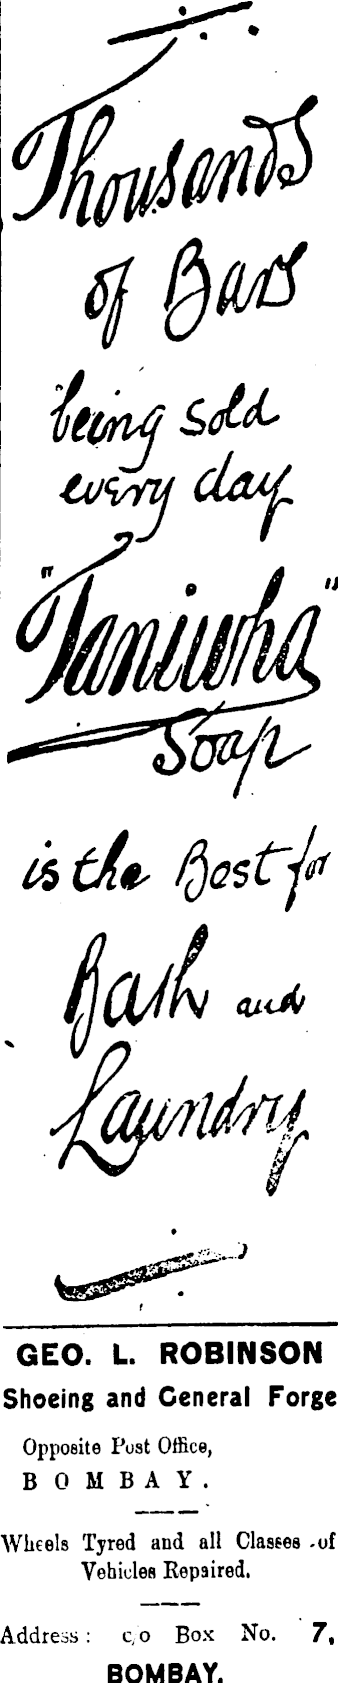 Thousands
of Bars
being sold
every day
"Taniwha"
Soap
is the Best for
Bath and
Laundry
GEO. L. ROBINSON
Shoeing and General Forge
Opposite Post Office,
BOMBAY.
Wheels Tyred and all Classes of
Vehicles Repaired.
Address: c/o Box No. 7,
BOMBAY.